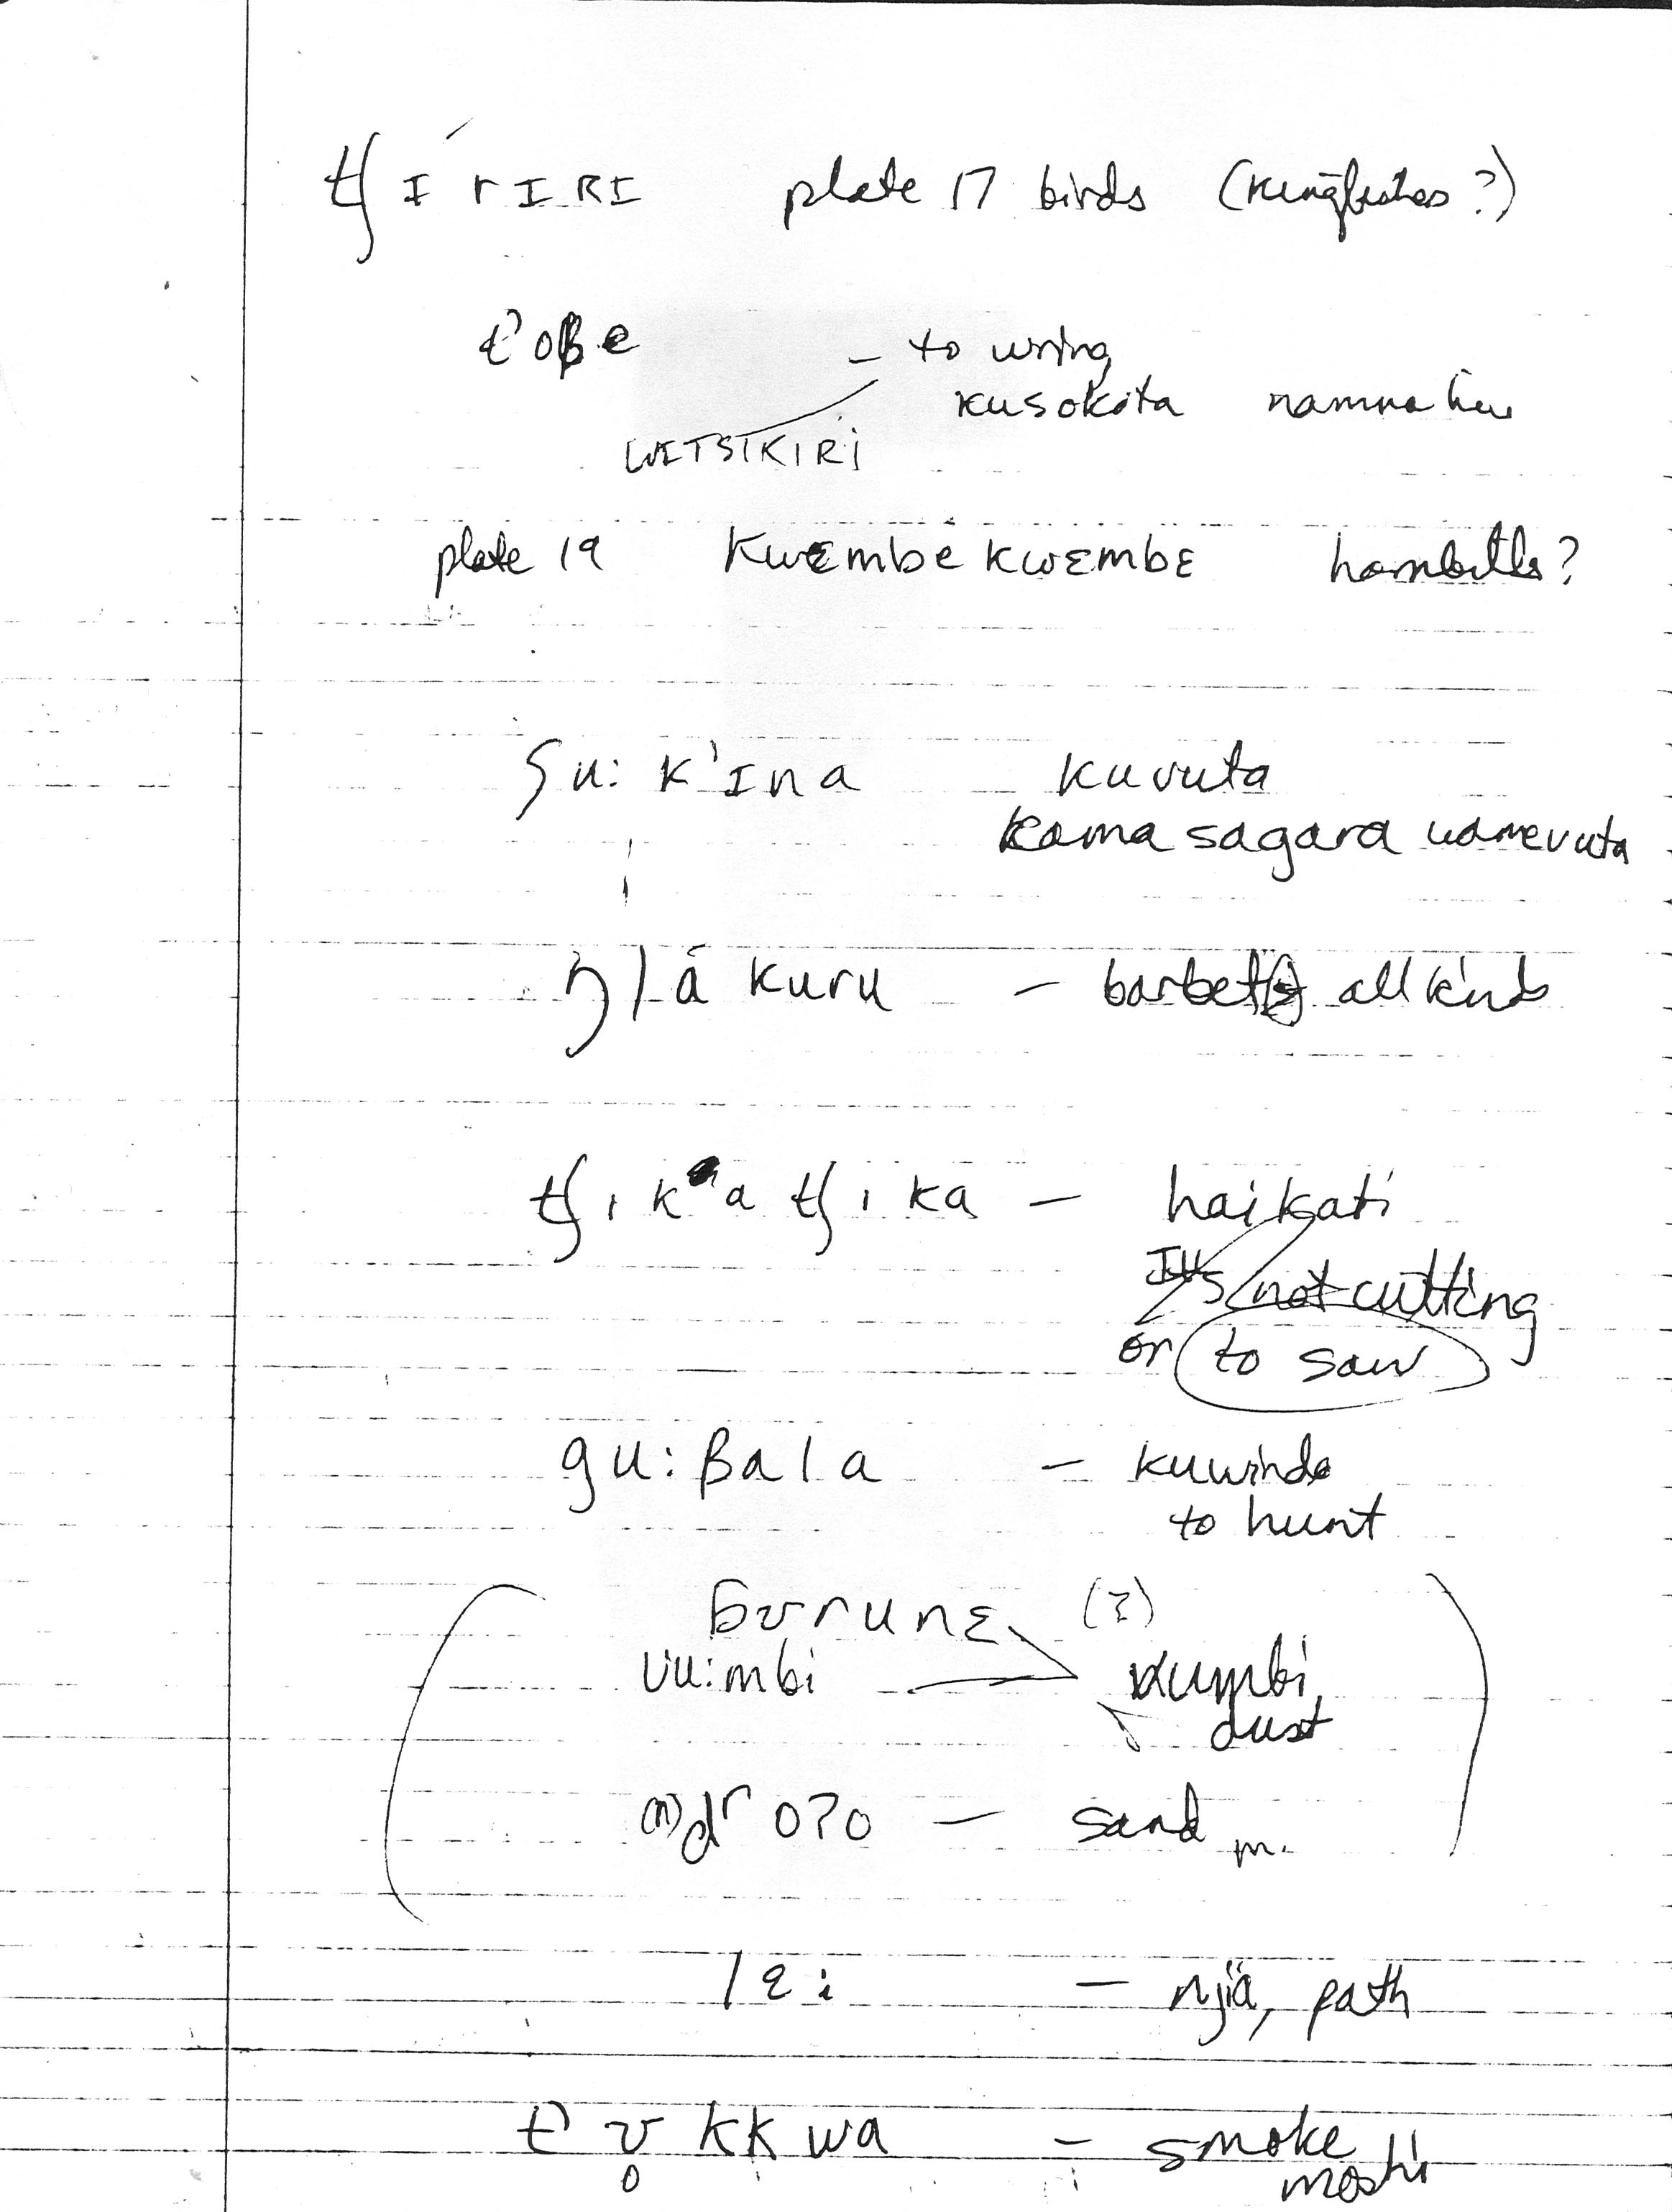 tʃɪ́rɪRI plate 17 birds (kingfishers?)
t'oβe – to wring
kusokota namna hii
WITSIKIRI
plate 19 kwɛmbe kwɛmbɛ hornbills?
ʕu: k'ɪna kuvuta
kama sagara uamevuta
ŋǀá kuru – barbet(s) all kinds
tʃika tʃika – haikati
It's not cutting
or to saw
gu:βala – kuwinda
to hunt
ɓʊrunɛ (?)
vu:mbi kumbi,
dust
(n)dʳoʔo – sand m.
ǀɛi – njia, path
t'ʊkkwa – smoke
o moshi